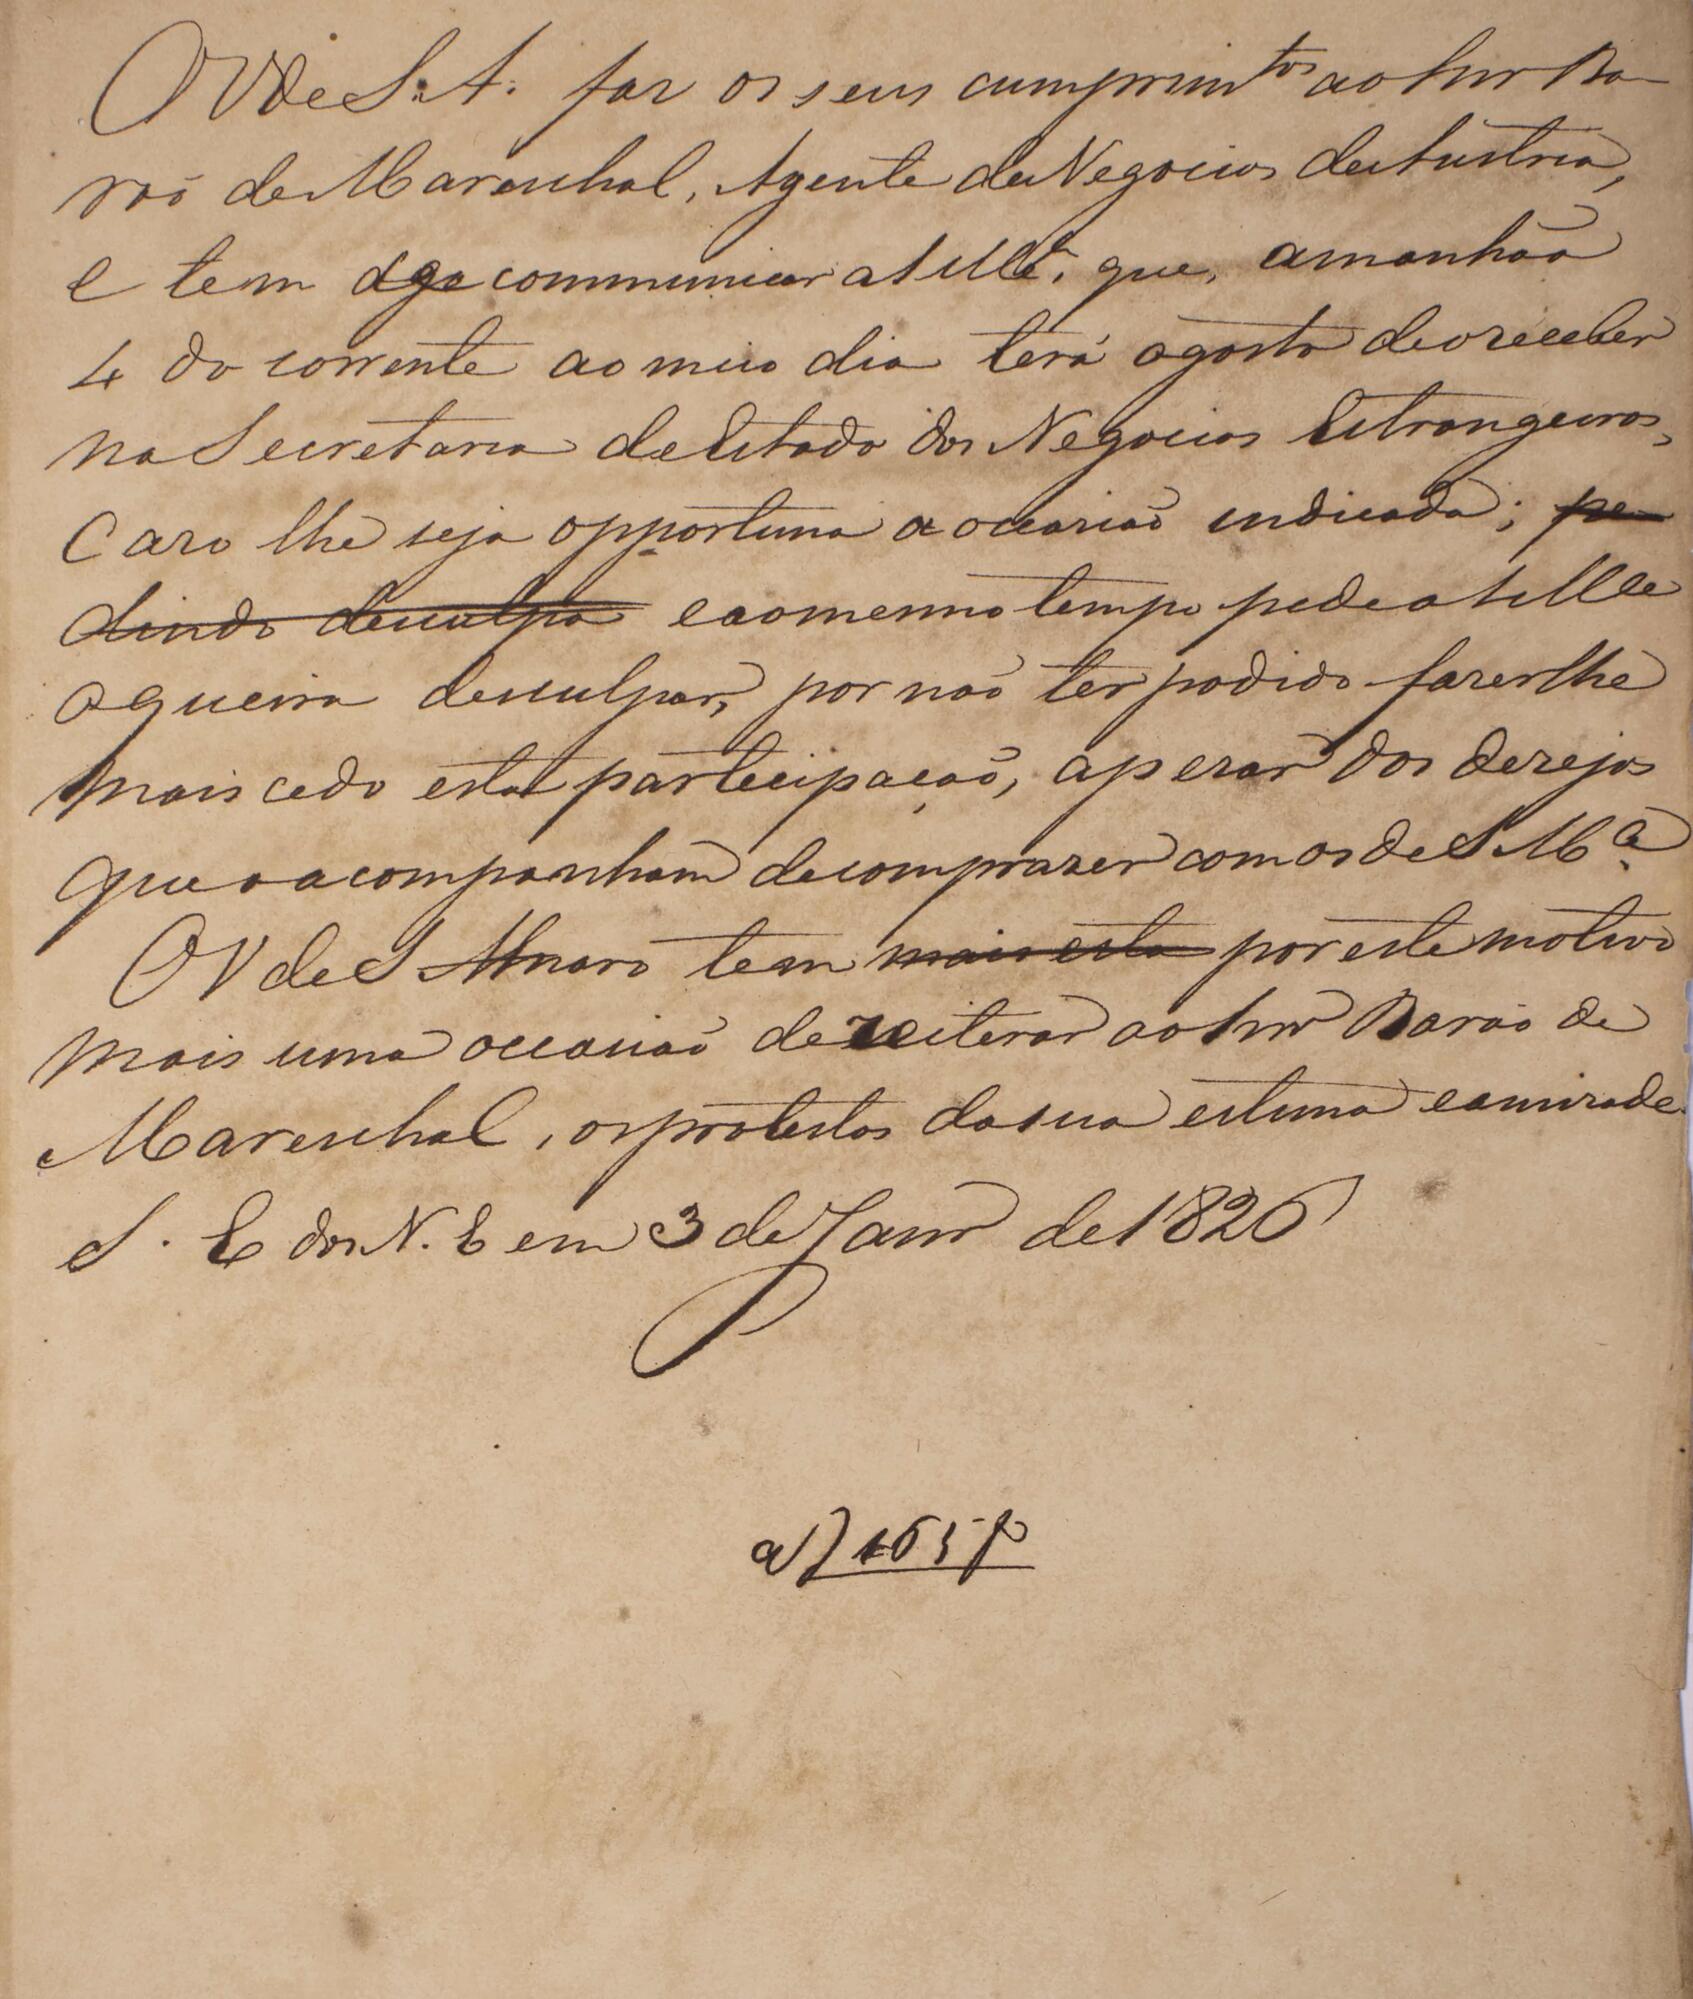 O V de S. A. faz os seus cumprimtos ao Snr Ba-
rão de Mareschal, Agente de Negocios de Austria,
e tem de communicar a S Mce, que, amanhãa
4 do corrente ao meio dia terá o gosto de o receber
na Secretaria de Estado dos Negocios Estrangeiros,
Cazo lhe seja opportuna a occasião indicada; pe-
dindo desculpa e ao mesmo tempo pede a S Mce
o queira desculpar, por não ter podido fazer lhe
mais cedo esta participação, apezar dos dezejos
que o acompanham de comprazer com os de S Mce
O V de S Amaro tem mais esta por este motivo
mais uma occasião de reiterar ao Snr Barão de
Mareschal, os protestos da sua estima e amizade
S. E dos N. E em 3 de Janr de 1826